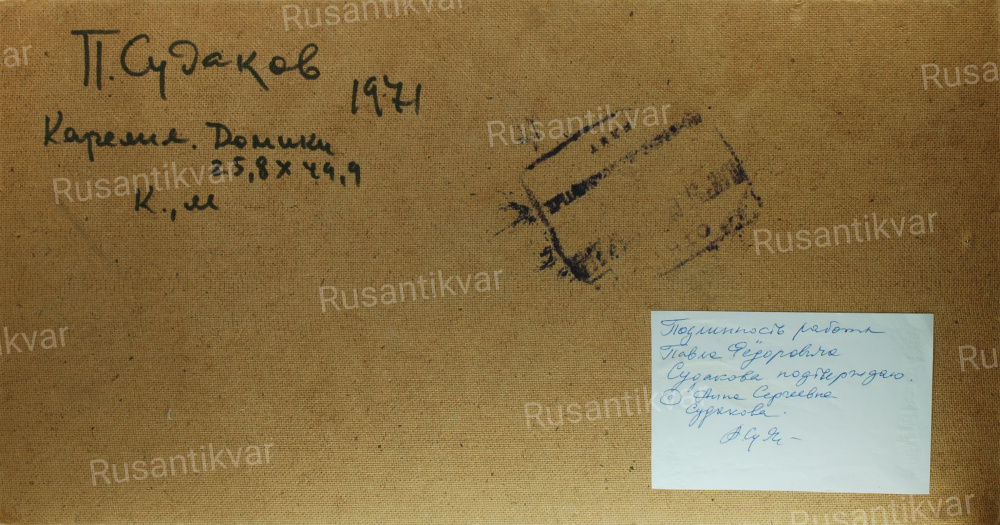 П. Судаков
1971
Карелия. Домики
25,8 х 49,9
К., м
Подлинность работы
Павла Фёдоровича
Судакова подтверждаю.
Анна Сергеевна
Судакова.
Rusantikvar
Rusantikvar
Rusantikvar
Rusantikvar
Rusantikvar
Rusantikvar
Rusantikvar
Rusantikvar